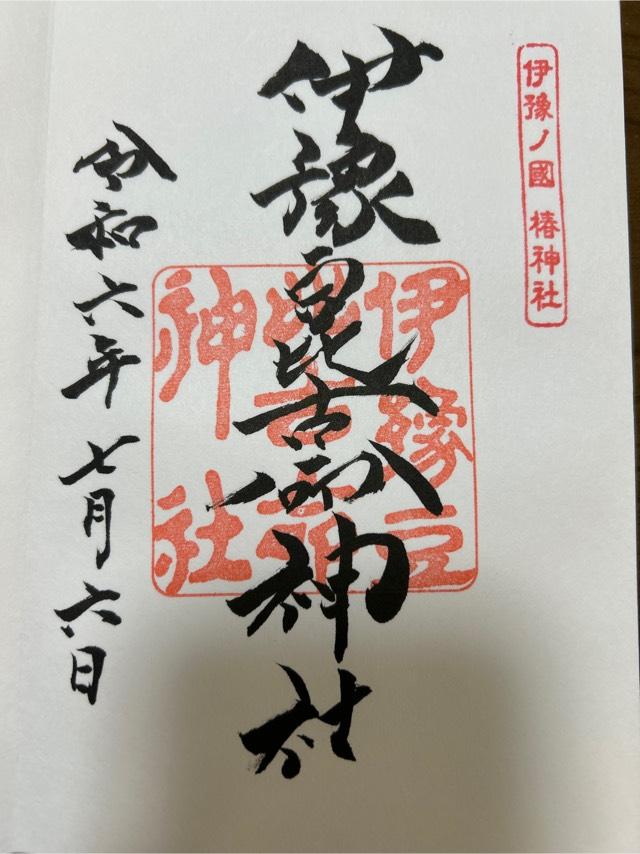 伊豫ノ國 椿神社
伊豫豆比古命神社
伊豫豆
比古命
神社
令和六年七月六日